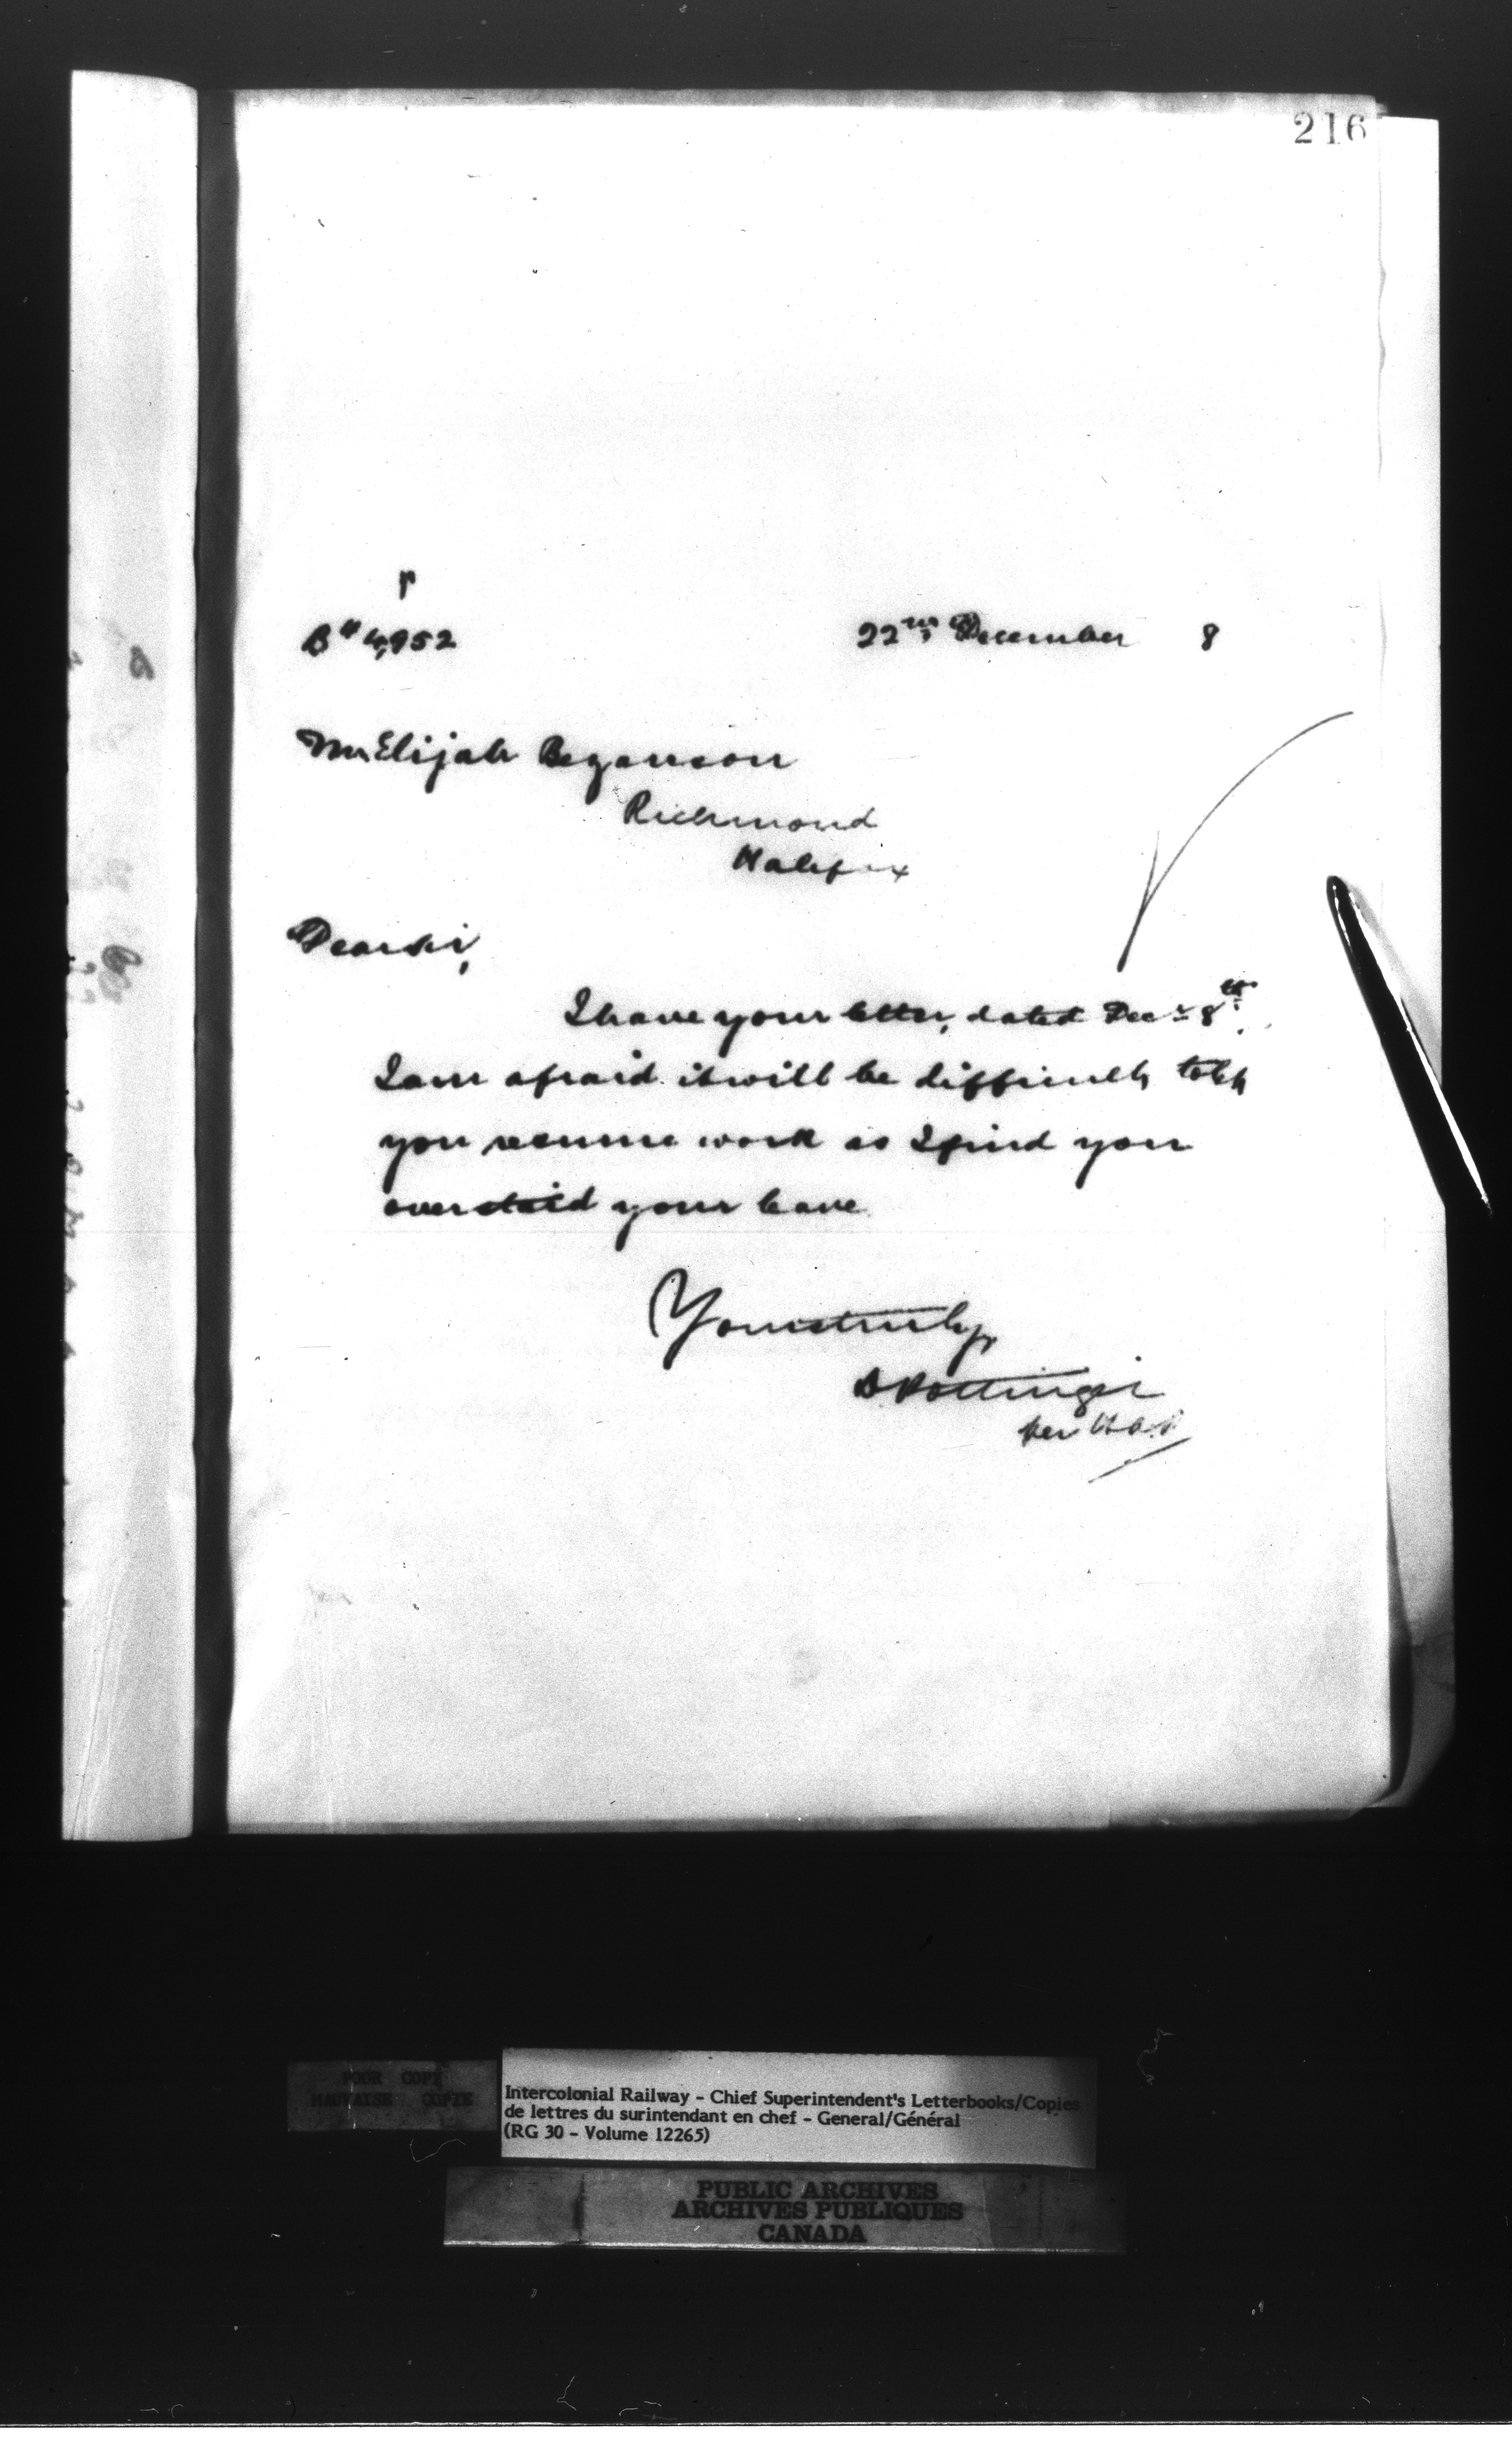 216
B" 4,952
22nd December 8
Mr Elijah Beganson
Richmond
Halifax
Dear Sir,
I have your letter, dated Decr 8th.
I am afraid it will be difficult to let
you resume work as I find you
overstaid your leave.
Yours truly,
D Pottinger
per
POOR COPY
MAUVAISE COPIE
Intercolonial Railway - Chief Superintendent's Letterbooks/Copies
de lettres du surintendant en chef - General/Général
(RG 30 - Volume 12265)
PUBLIC ARCHIVES
ARCHIVES PUBLIQUES
CANADA